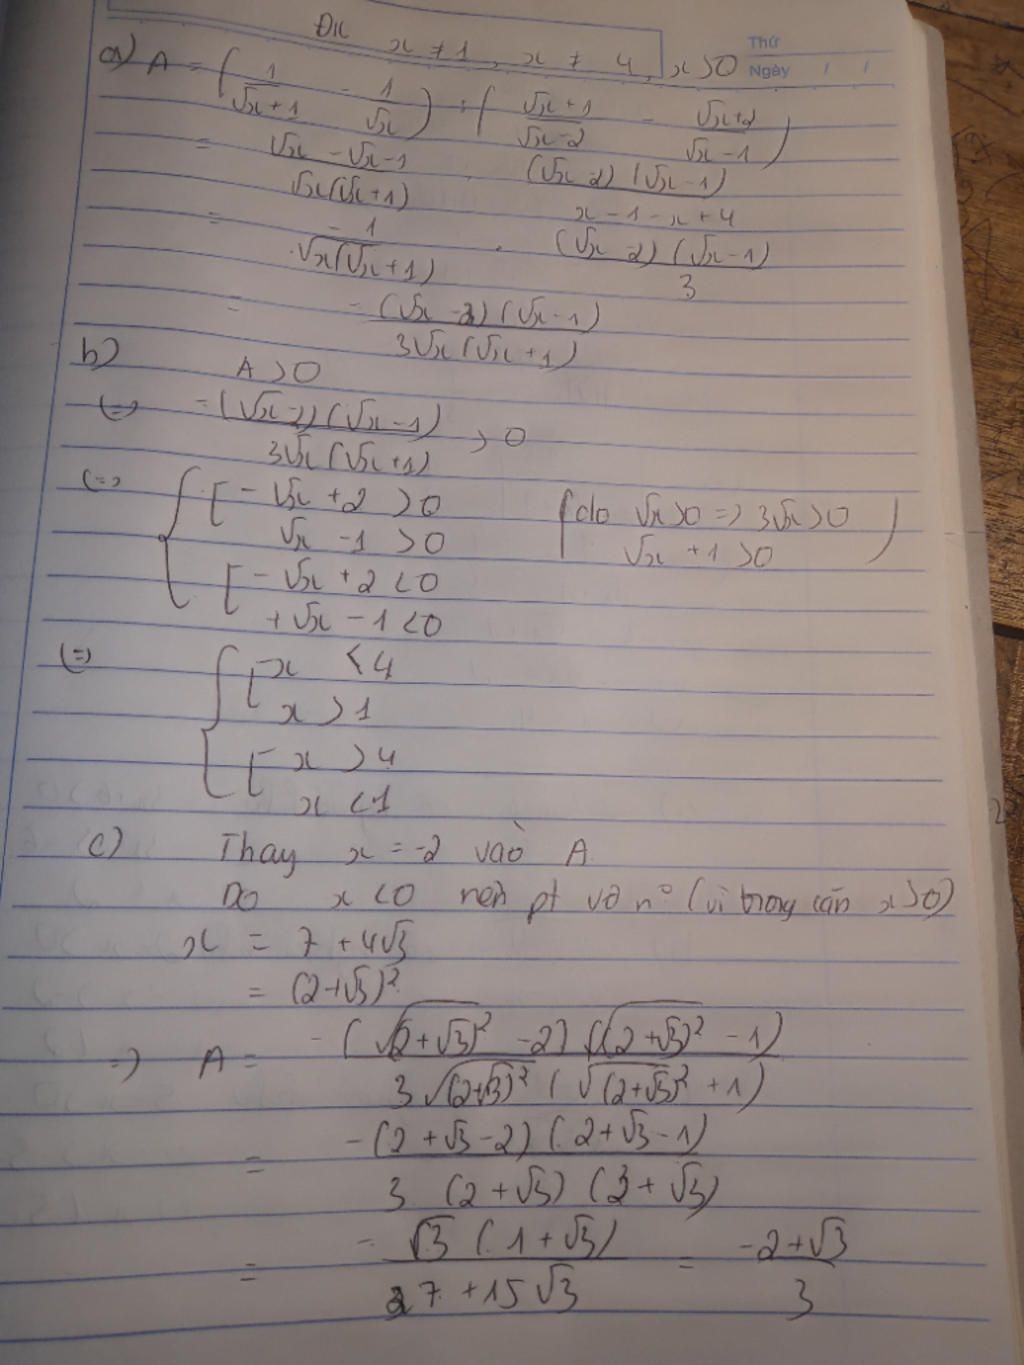 Đk x ≠ 1, x ≠ 4, x > 0
Thứ
Ngày / /
a) A = (1/(√x + 1) - 1/√x) : ((√x + 1)/(√x - 2) - (√x + 2)/(√x - 1))
= (√x - √x - 1)/(√x(√x + 1)) . ((√x - 2)(√x - 1))/(x - 1 - x + 4)
= -1/(√x(√x + 1)) . ((√x - 2)(√x - 1))/3
= -(√x - 2)(√x - 1)/(3√x(√x + 1))
b) A > 0
(=) -(√x - 2)(√x - 1)/(3√x(√x + 1)) > 0
(=) { [ -√x + 2 > 0 (do √x > 0 => 3√x > 0
√x - 1 > 0 √x + 1 > 0)
[ -√x + 2 < 0
+√x - 1 < 0
(=) { [ x < 4
x > 1
[ x > 4
x < 1
c) Thay x = -2 vào A
Do x < 0 nên pt vô n⁰ (vì trong căn x > 0)
x = 7 + 4√3
= (2 + √3)²
=> A = -(√(2 + √3)² - 2)(√(2 + √3)² - 1)/(3√(2 + √3)² (√(2 + √3)² + 1))
= -(2 + √3 - 2)(2 + √3 - 1)/(3 (2 + √3)(3 + √3))
= -√3 (1 + √3)/(27 + 15√3) = (-2 + √3)/3